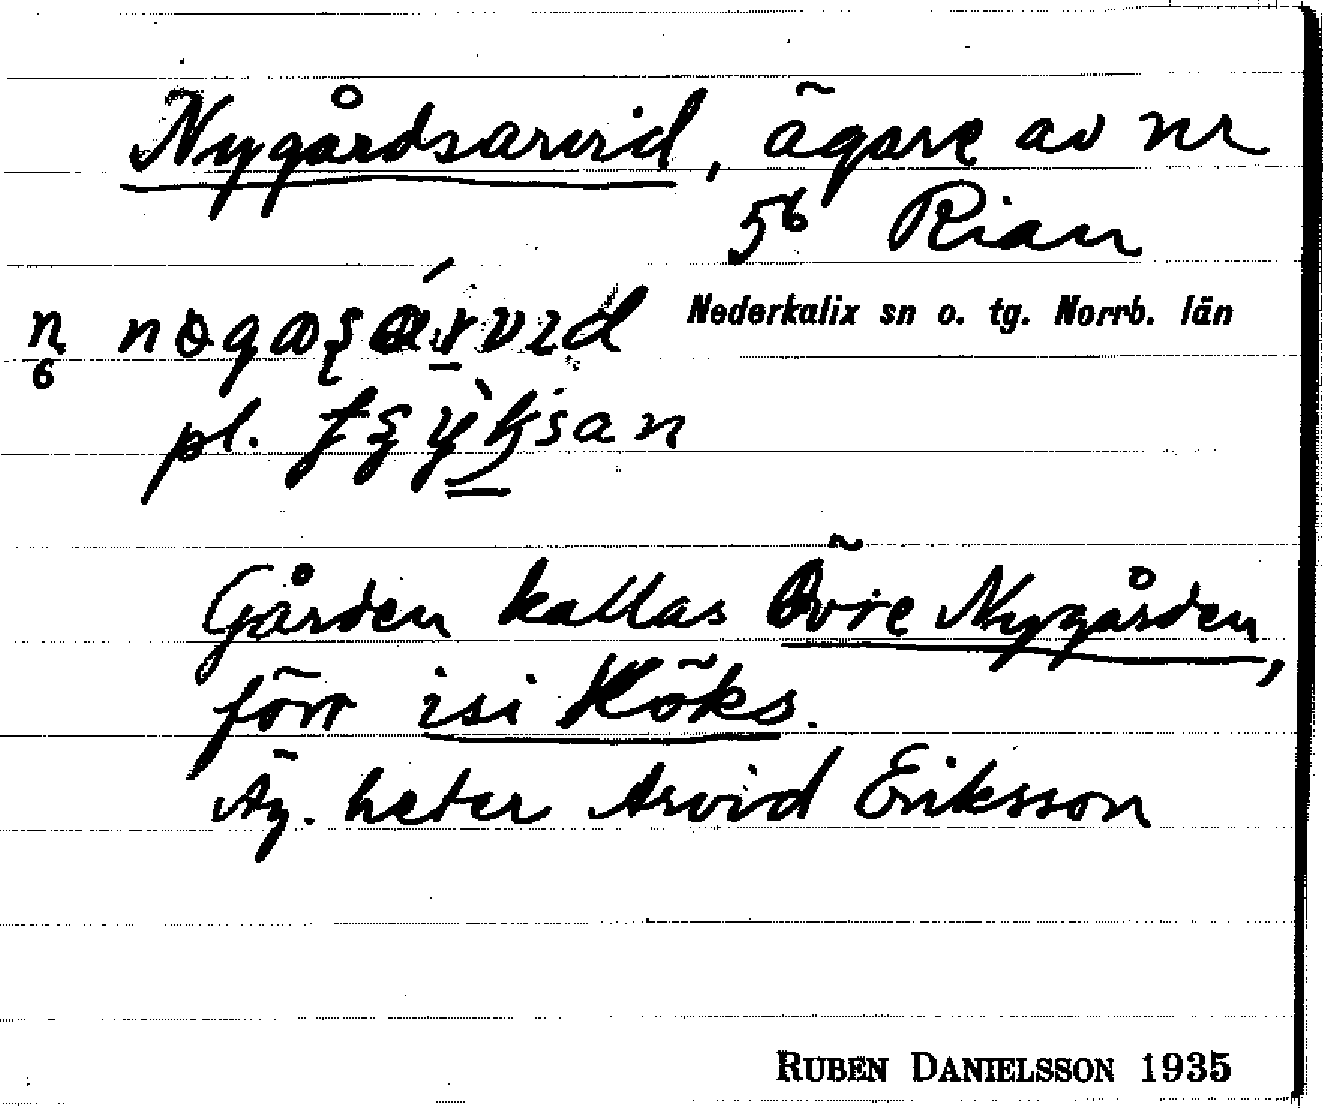 Nygårdsarvid, ägare av nr
5b Rian
Nederkalix sn o. tg. Norrb. län
n
6
pl.
Gården kallas Övre Nygården,
förr isi Köks.
Äg. heter Arvid Eriksson
RUBEN DANIELSSON 1935